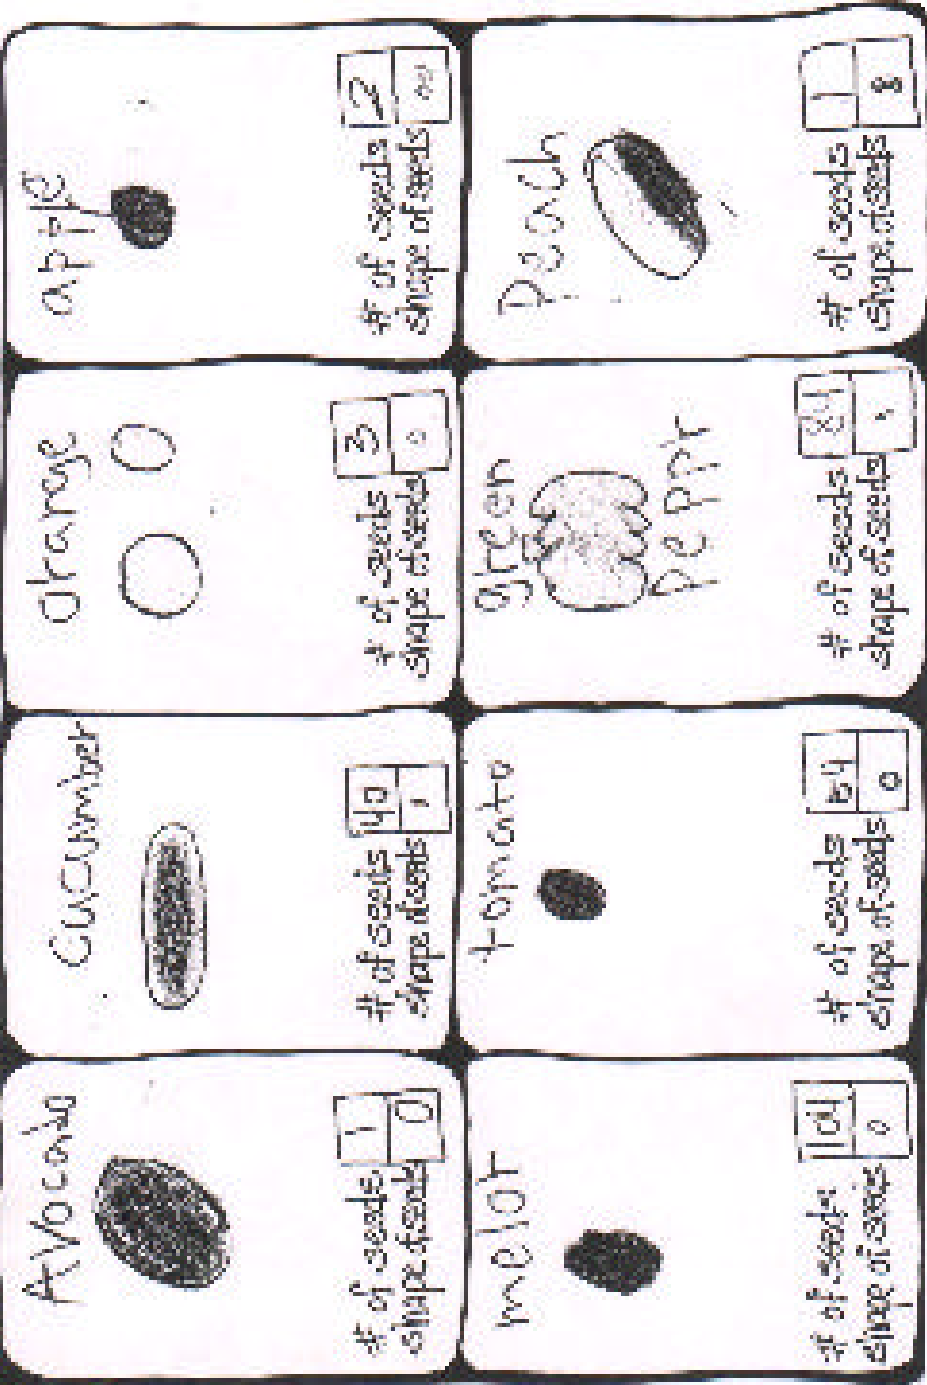 Avocado
# of seeds 1
shape of seeds
Cucumber
# of seeds 40
shape of seeds
orange
# of seeds 3
shape of seeds
apple
# of seeds 2
shape of seeds
melon
# of seeds 104
shape of seeds
tomato
# of seeds
shape of seeds
green
peppr
# of seeds 84
shape of seeds
Peach
# of seeds 1
shape of seeds